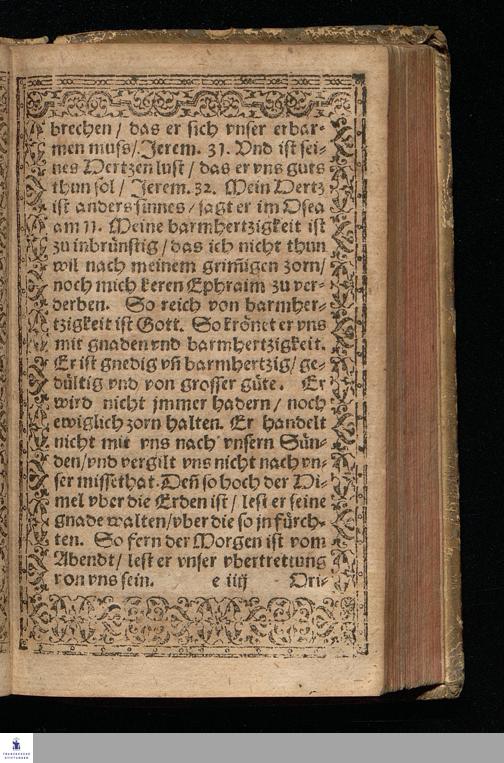 brechen / das er sich vnser erbar-
men muss / Jerem. 31. Vnd ist sei-
nes Hertzen lust / das er vns guts
thun sol / Jerem. 32. Mein Hertz
ist anders sinnes / sagt er im Osea
am 11. Meine barmhertzigkeit ist
zu inbrünstig / das ich nicht thun
wil nach meinem grim̃igen zorn /
noch mich keren Ephraim zu ver-
derben. So reich von barmher-
tzigkeit ist Gott. So krönet er vns
mit gnaden vnd barmhertzigkeit.
Er ist gnedig vñ barmhertzig / ge-
dültig vnd von grosser güte. Er
wird nicht jmmer hadern / noch
ewiglich zorn halten. Er handelt
nicht mit vns nach vnsern Sün-
den / vnd vergilt vns nicht nach vn-
ser missethat. Deñ so hoch der Hi-
mel vber die Erden ist / lest er seine
gnade walten / vber die so jn fürch-
ten. So fern der Morgen ist vom
Abendt / lest er vnser vbertrettung
von vns sein. e iiij Hri-
FRANCKESCHE
STIFTUNGEN